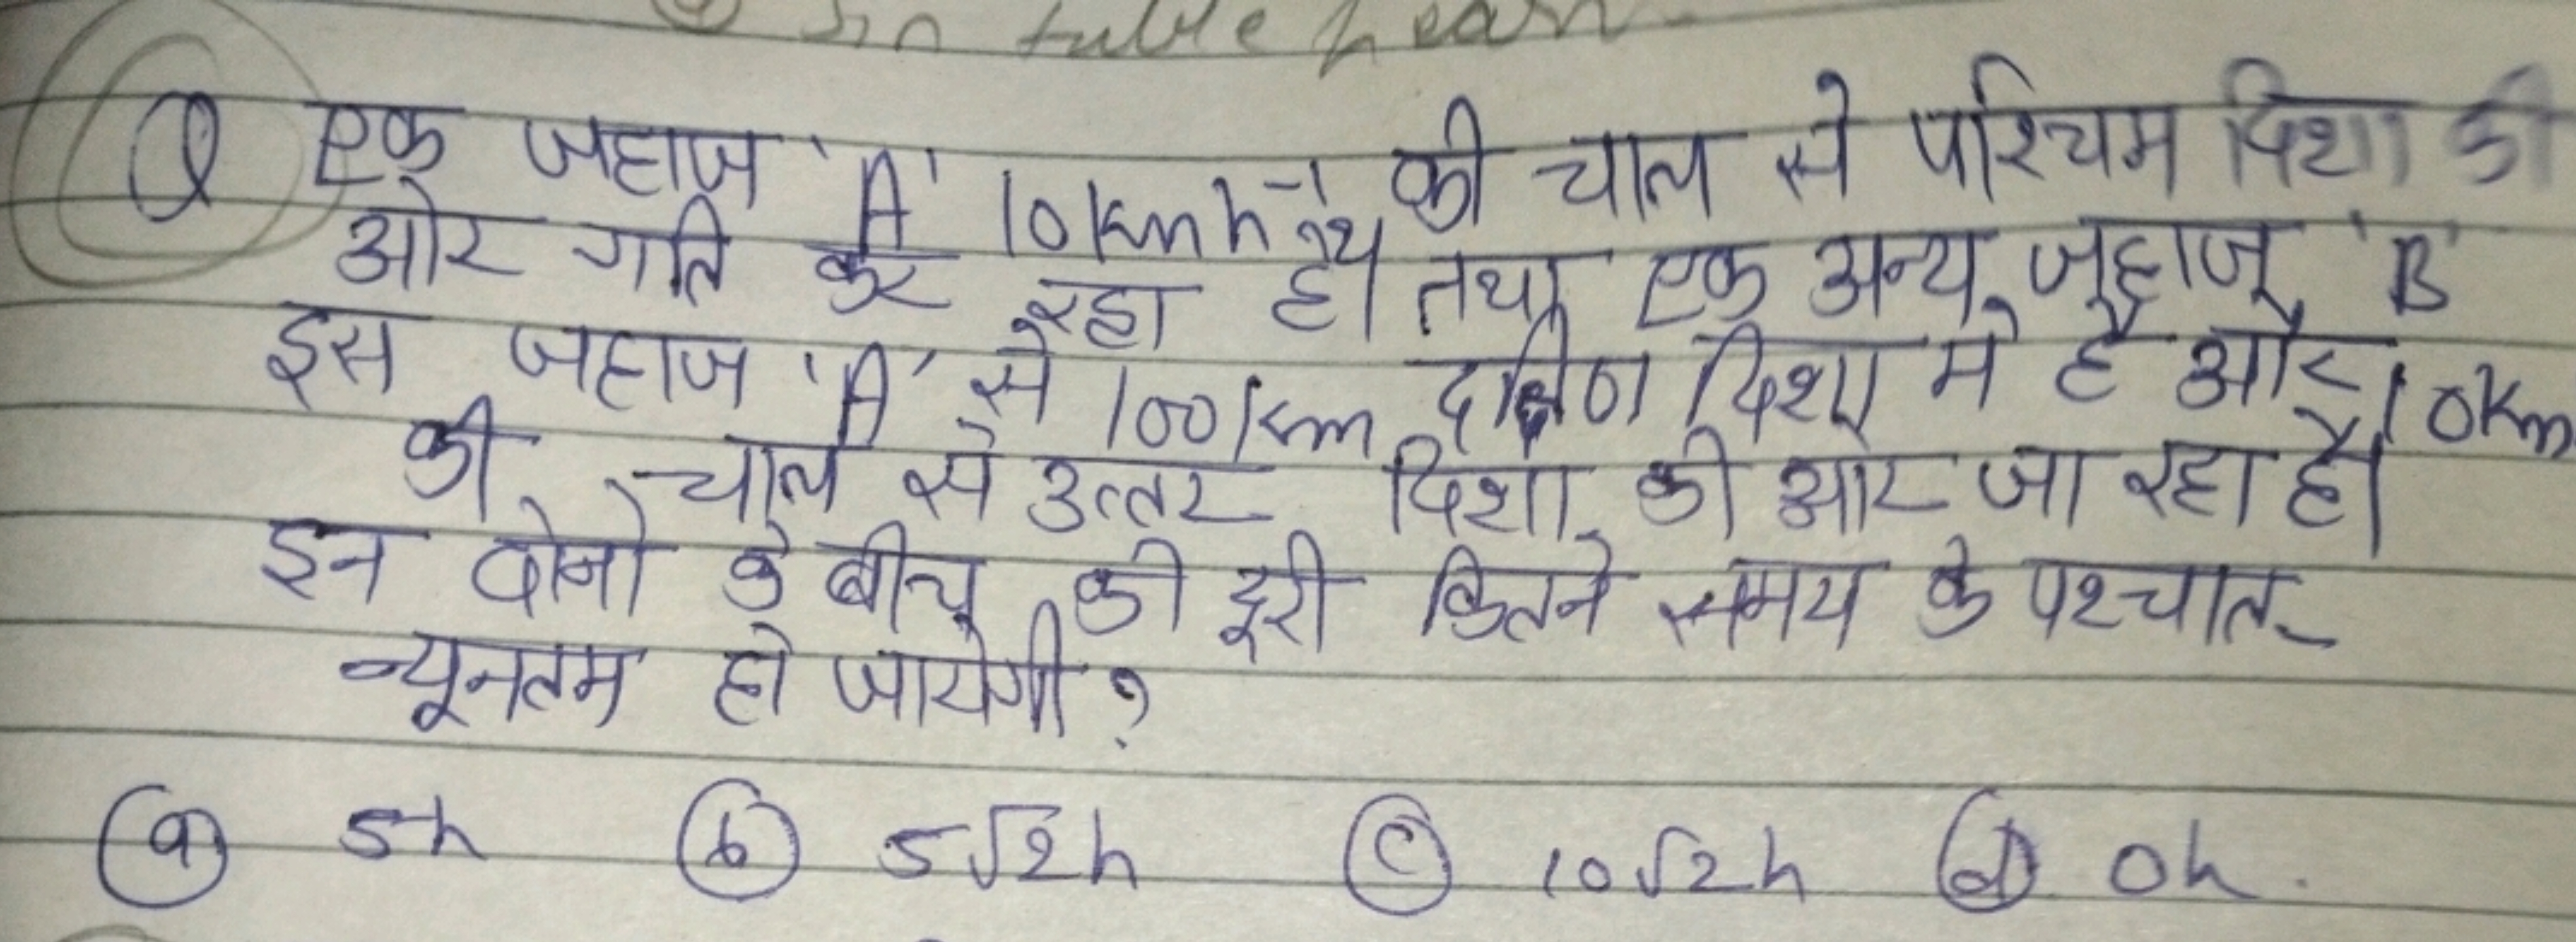 In table learn
Q एक जहाज 'A' 10 kmh⁻¹ की चाल से पश्चिम दिशा की
ओर गति कर रहा है। तथा एक अन्य जहाज 'B'
इस जहाज 'A' से 100 km दक्षिण दिशा मे है और 10km
की चाल से उत्तर दिशा की ओर जा रहा है।
इन दोनो के बीच की दूरी कितने समय के पश्चात
न्यूनतम हो जायेगी ?
(a) 5h (b) 5√2h (c) 10√2h (d) 0h.